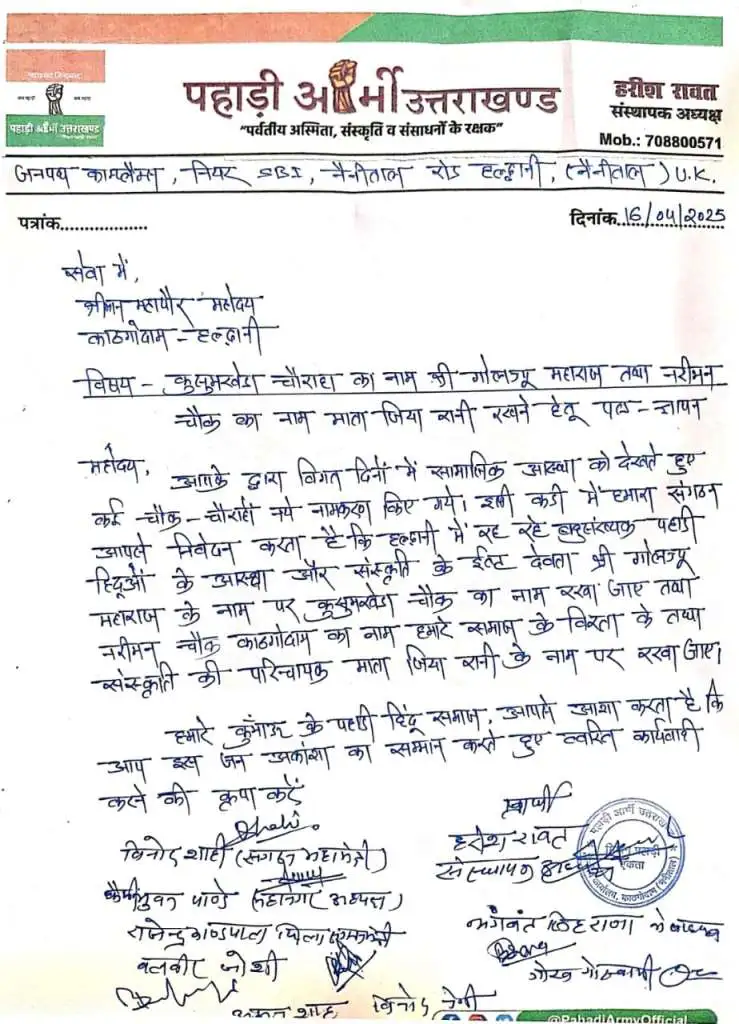 पहाड़ी आर्मी उत्तराखण्ड
"पर्वतीय अस्मिता, संस्कृति व संसाधनों के रक्षक"
हरीश रावत
संस्थापक अध्यक्ष
Mob.: 708800571
पहाड़ी आर्मी उत्तराखण्ड
जनपथ काम्लैक्स, नियर SBI, नैनीताल रोड हल्द्वानी, (नैनीताल) U.K.
पत्रांक..................
दिनांक 16/04/2025
सेवा में,
श्रीमान महापौर महोदय
काठगोदाम - हल्द्वानी
विषय - कुसुमखेडा चौराहा का नाम श्री गोलज्यू महाराज तथा नरीमन
चौक का नाम माता जिया रानी रखने हेतू पत्र - ज्ञापन
महोदय,
आपके द्वारा विगत दिनों में सामाजिक आस्था को देखते हुए
कई चौक - चौराहों नये नामकरण किए गये। इसी कडी में हमारा संगठन
आपसे निवेदन करता है कि हल्द्वानी में रह रहे बाहुसंख्यक पहाडी
हिदूओं के आस्था और संस्कृति के ईष्ट देवता श्री गोलज्यू
महाराज के नाम पर कुसुमखेडा चौक का नाम रखा जाए तथा
नरीमन चौक काठगोदाम का नाम हमारे समाज के विरता के तथा
संस्कृति की परिचायक माता जिया रानी के नाम पर रखा जाए।
हमारे कुँमाऊ के पहाडी हिंदू समाज, आपसे आशा करता है कि
आप इस जन अकांशा का सम्मान करते हुए त्वरित कार्यवाही
करने की कृपा करें
प्रार्थी
हरीश रावत
संस्थापक अध्यक्ष
विनोद शाही (संगठन महामंत्री)
भुवन पाण्डे (महानगर अध्यक्ष)
राजेन्द्र काण्डपाल जिला
भगवंत सिंह राणा
बलवीर जोशी
गोरव गोस्वामी
शाह विनोद नेगी
@PahadiArmyOfficial